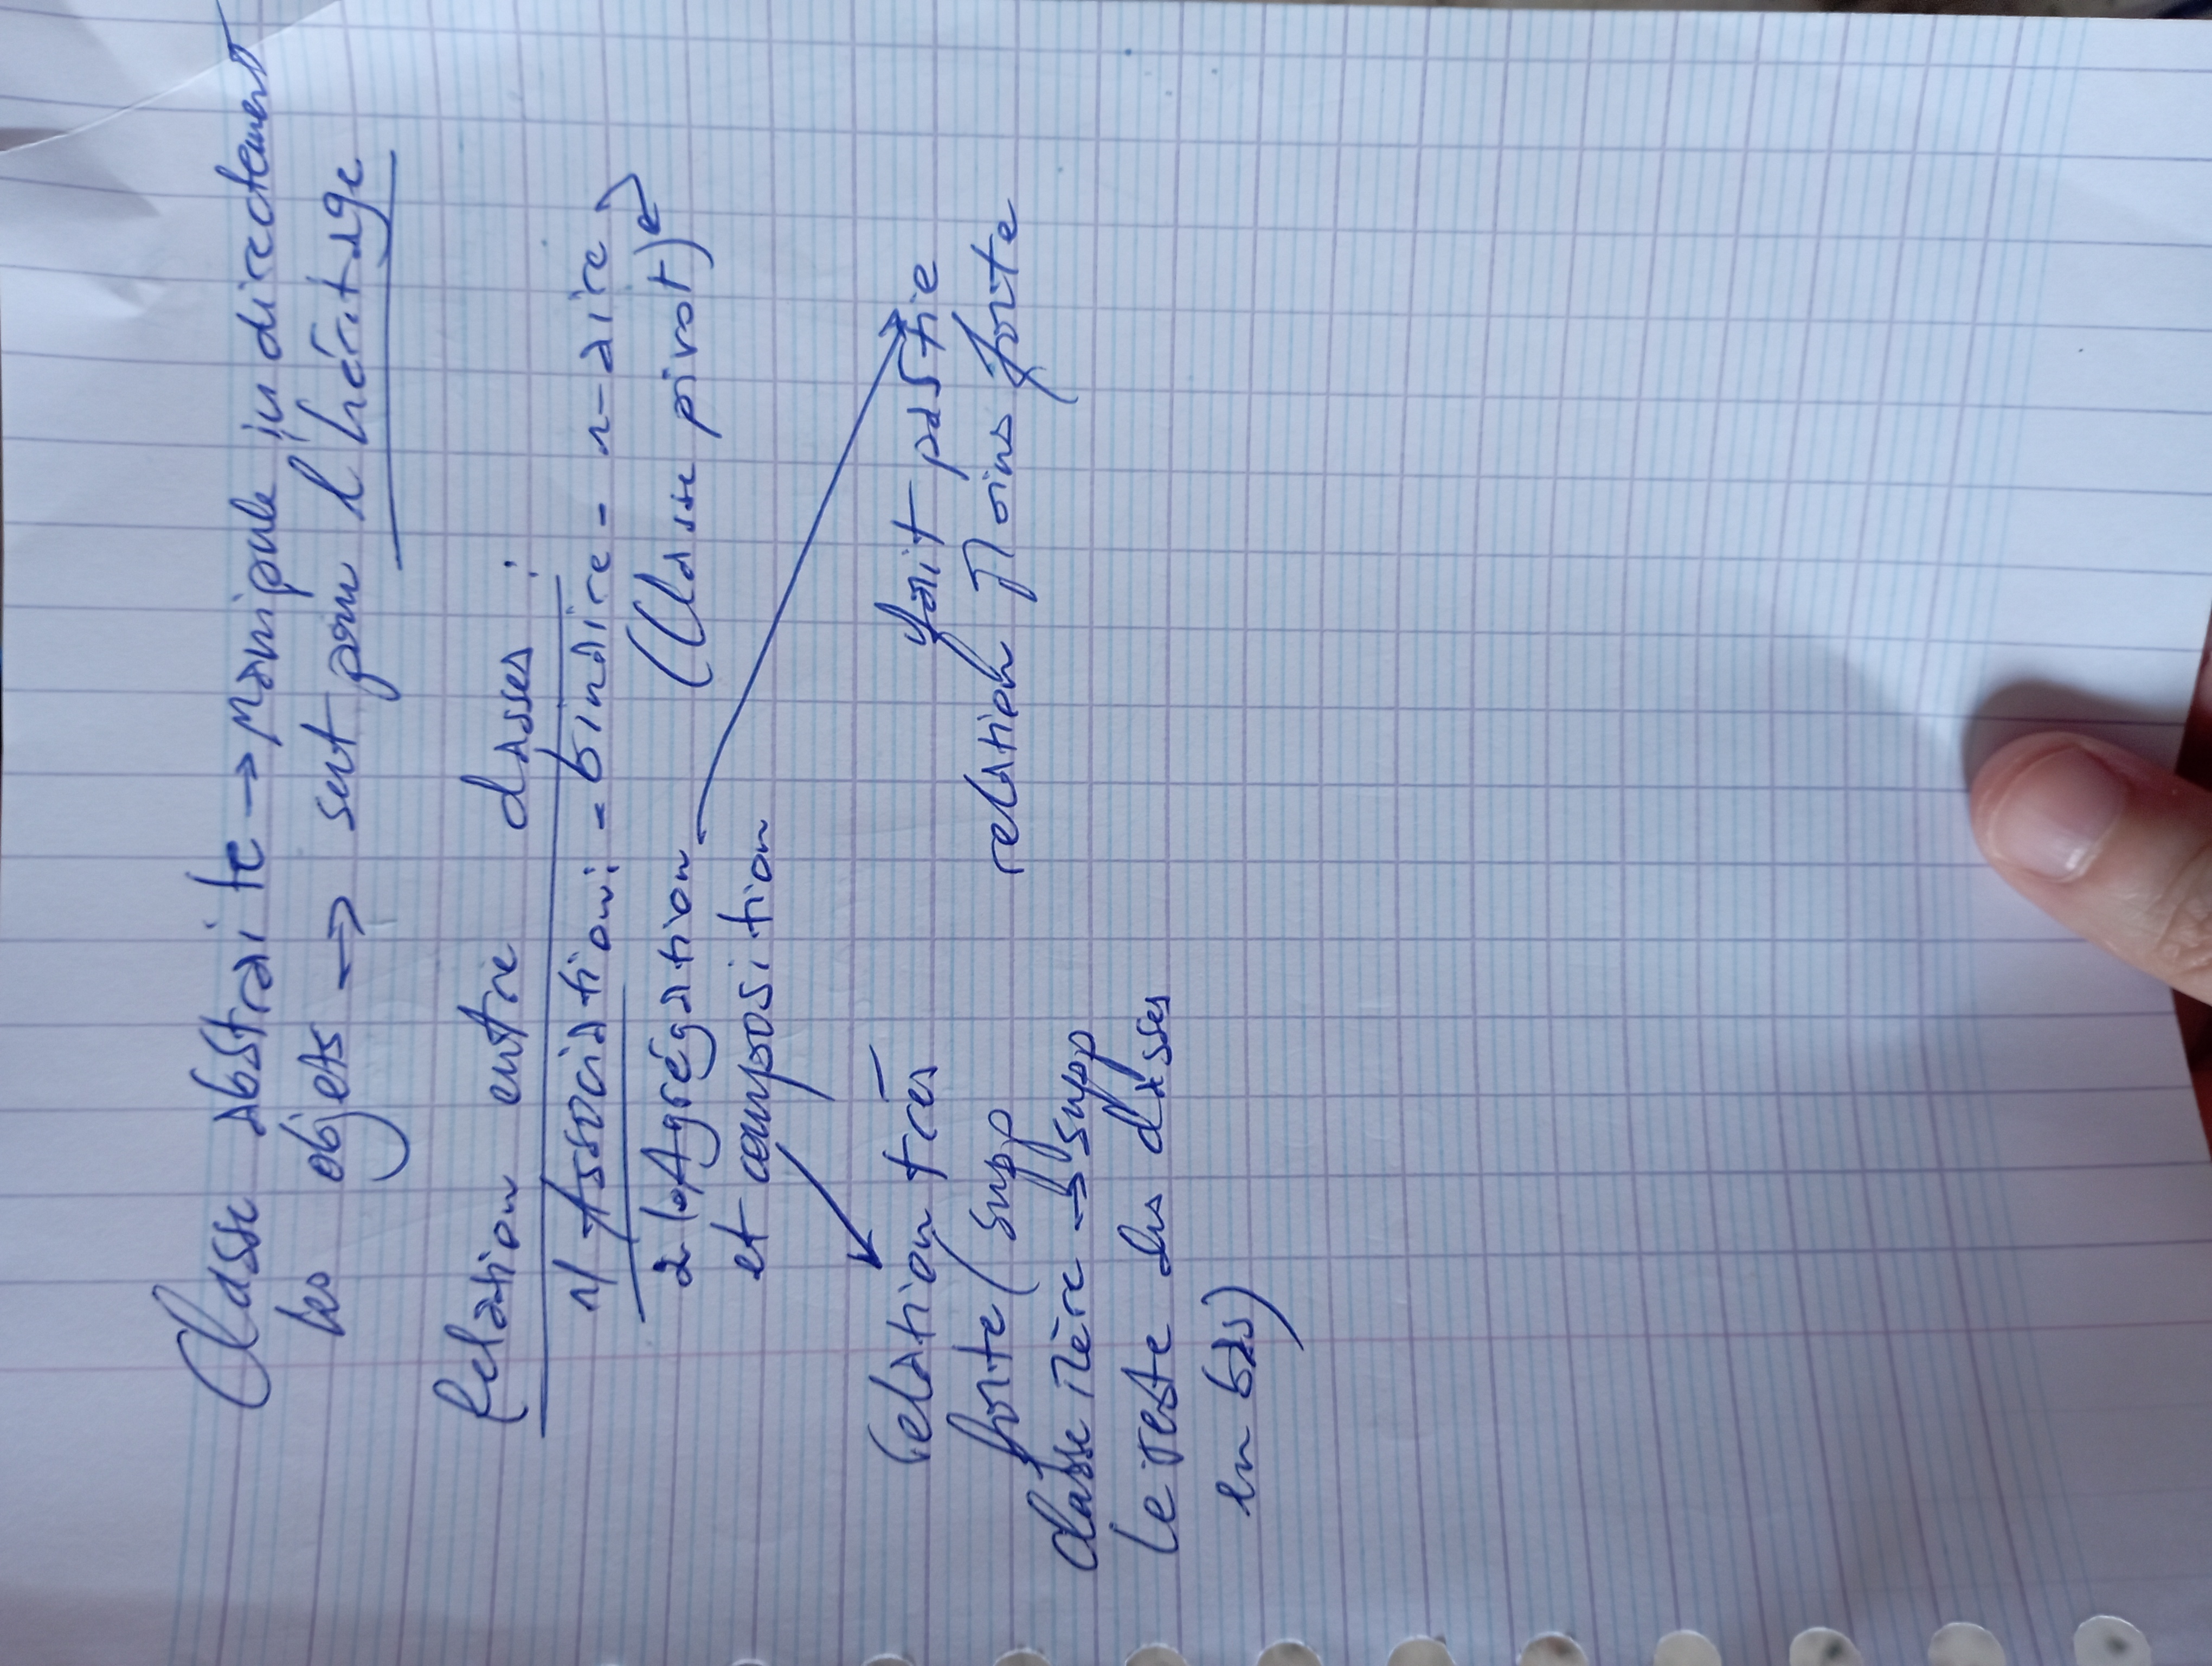 Classe abstraite → Manipule indirectement
les objets → sert pour l'héritage
Relation entre classes :
1/ Association : - binaire - n-aire
2/ Agrégation (Classe pivot)
et composition
relation très
forte (supp
classe mère → supp
le reste des classes
en bas)
fait partie
relation Moins forte